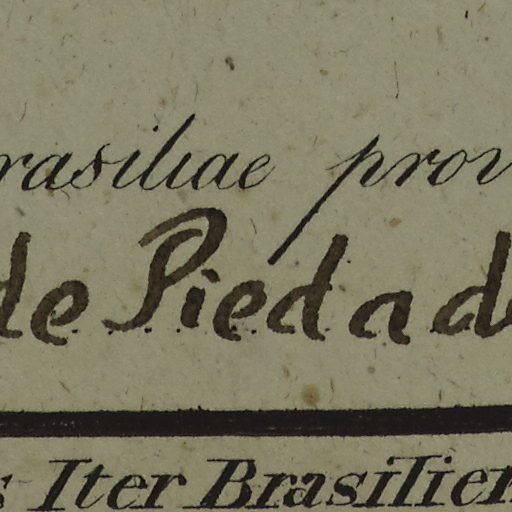 rasiliae prov
de Piedad
s Iter Brasilien